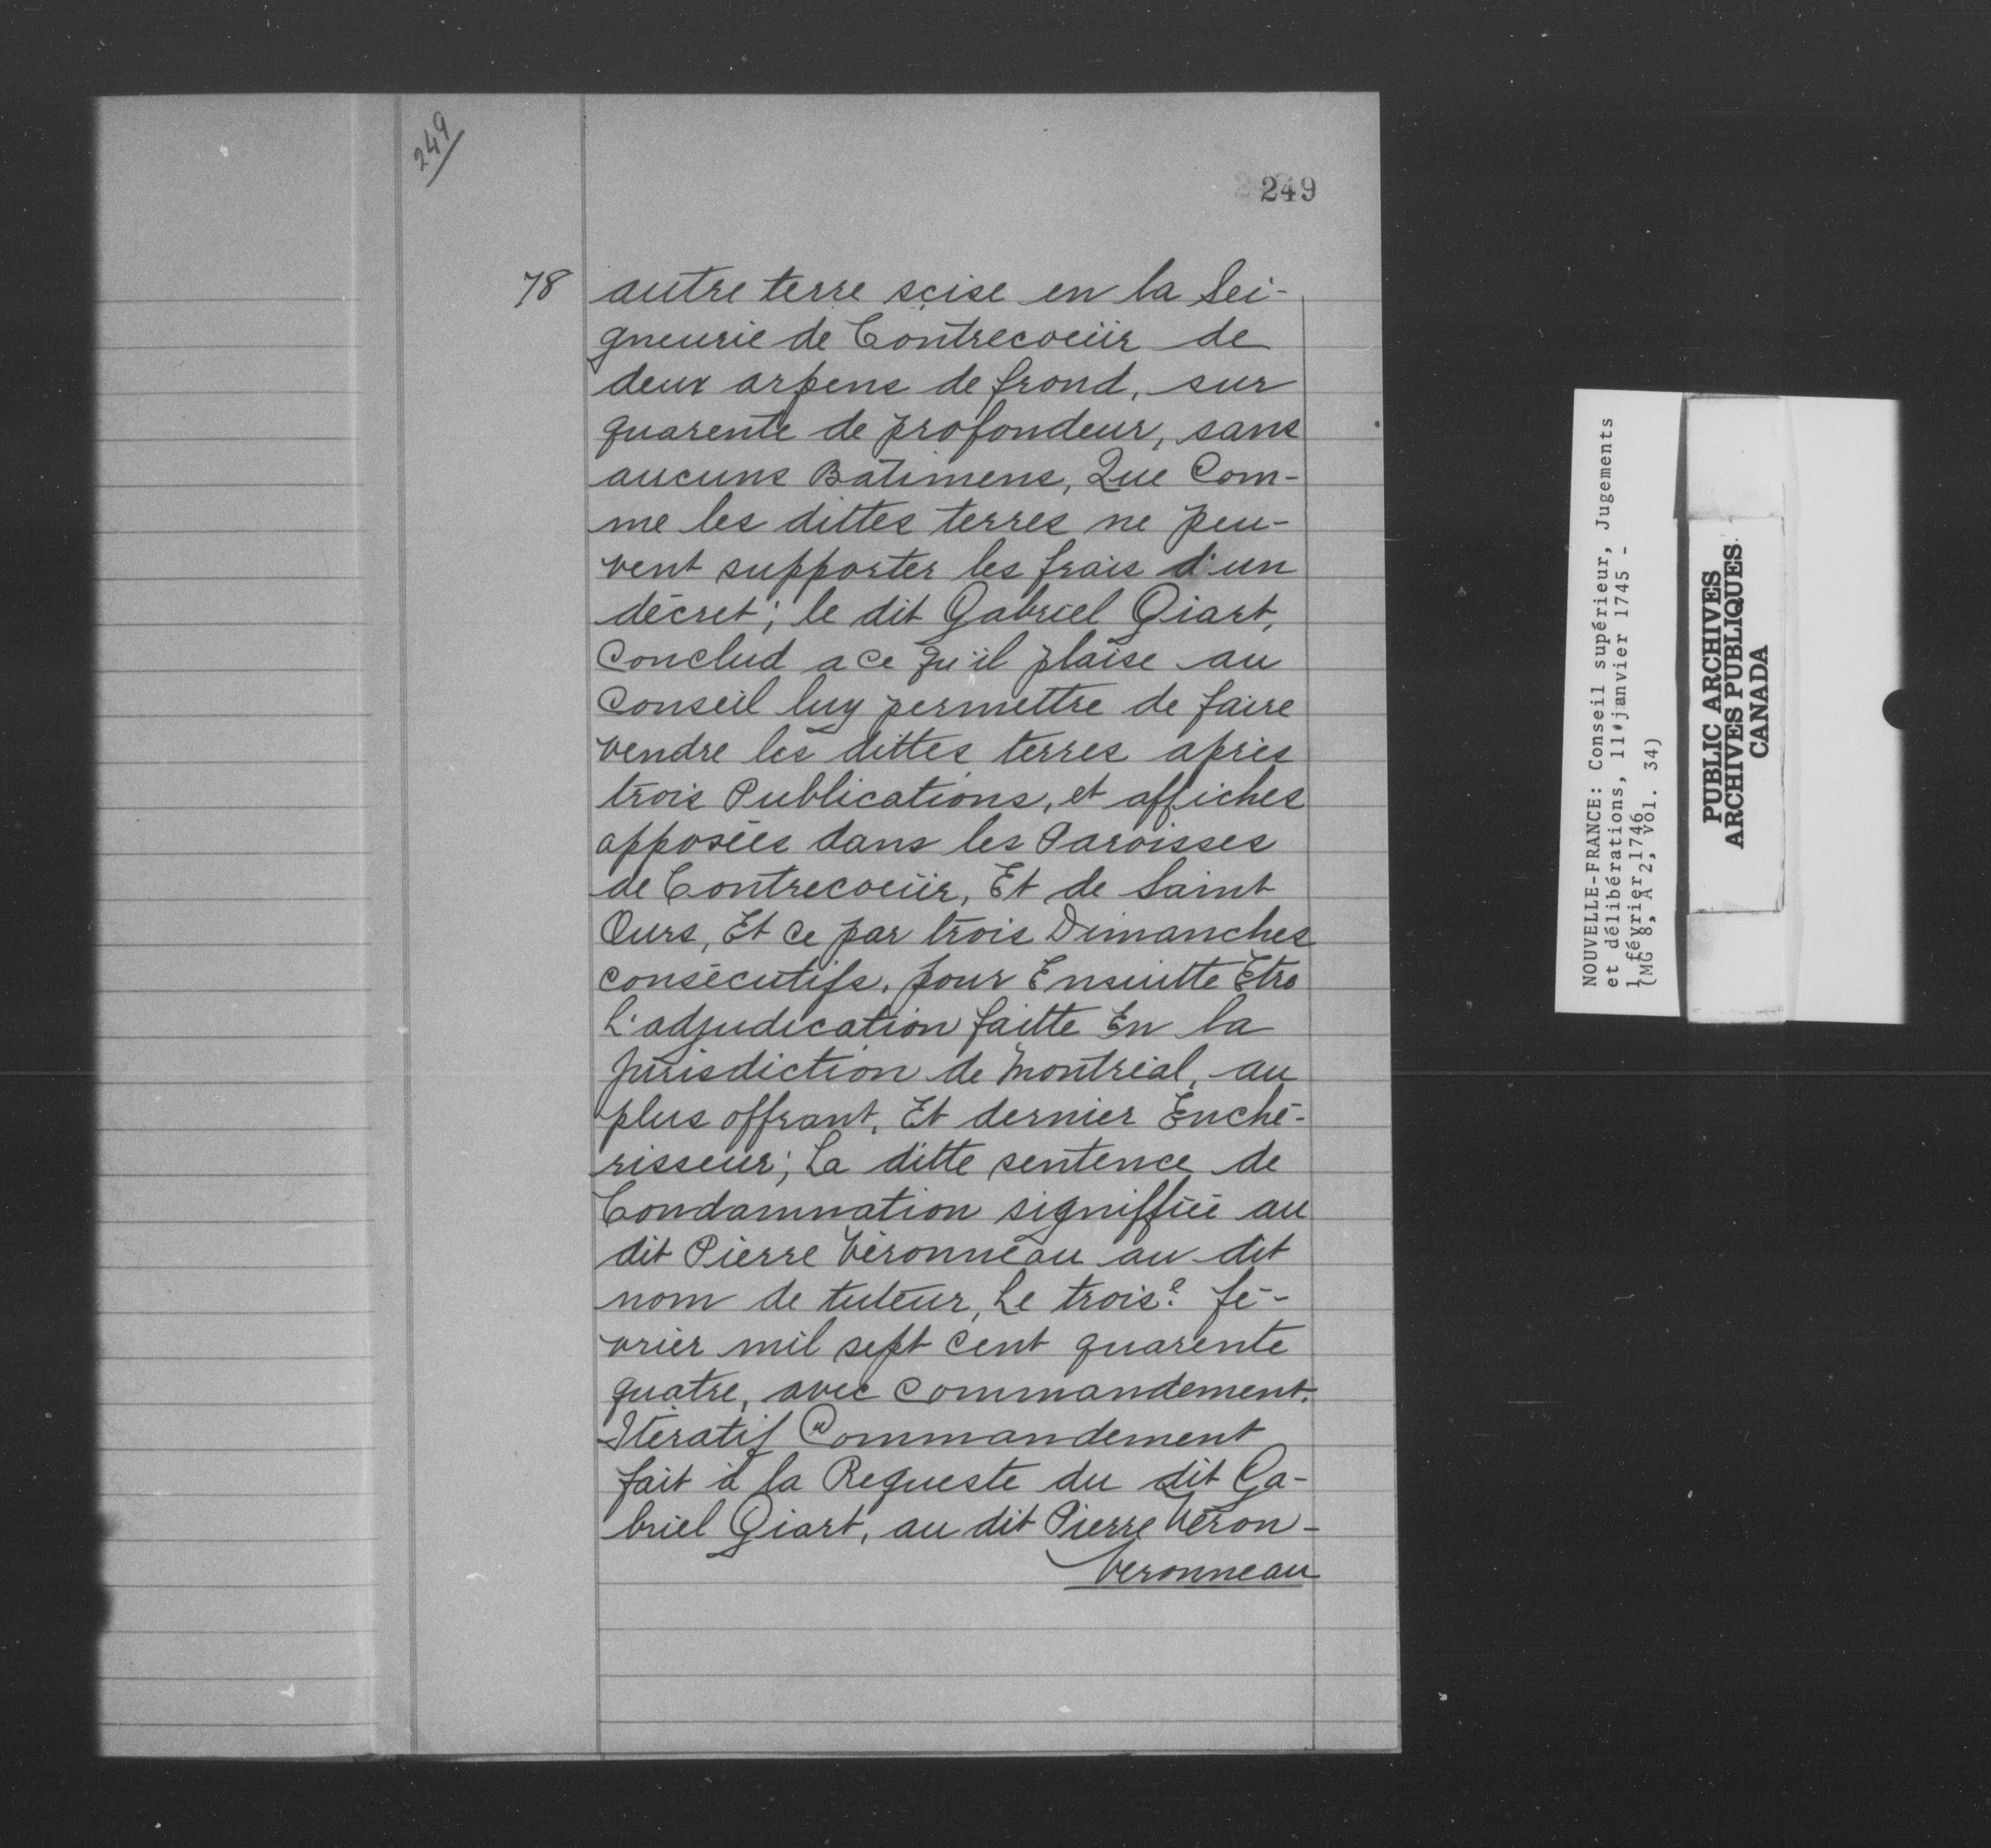 249
249
78 autre terre scise en la Sei-
gneurie de Contrecoeür de
deux arpens de frond, sur
quarente de profondeur, sans
aucuns Batimens, Que Com-
me les dittes terres ne peu-
vent supporter les frais d'un
décret; le dit Gabriel Giart,
Conclud a ce qu'il plaise au
Conseil luy permettre de faire
vendre les dittes terres après
trois Publications, et affiches
apposées dans les Paroisses
de Contrecoeür, Et de Saint
Ours, Et ce par trois Dimanches
consécutifs, pour Ensuitte Etre
L'adjudication faitte En la
Jurisdiction de Montréal, au
plus offrant, Et dernier Enché-
risseur; La ditte sentence de
Condamnation signiffiée au
dit Pierre Véronneau au dit
nom de tuteur, Le trois.e fé-
vrier mil sept cent quarente
quatre, avec commandement.
Itératif Commandement
fait à la Requeste du dit Ga-
briel Giart, au dit Pierre Véron-
Veronneau
NOUVELLE-FRANCE: Conseil supérieur, Jugements
et délibérations, 11 janvier 1745 -
1 février 1746
(MG 8, A 2, vol. 34)
PUBLIC ARCHIVES
ARCHIVES PUBLIQUES
CANADA